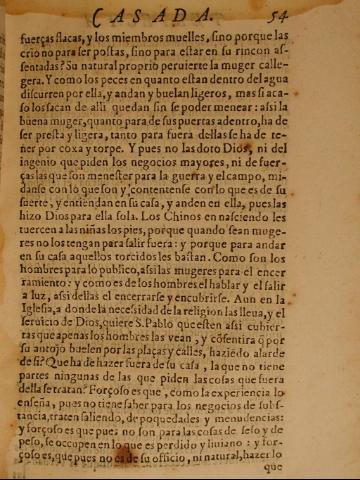 CASADA. 54
fuerças flacas, y los miembros muelles, sino porque las
crio no para ser postas, sino para estar en su rincon as-
sentadas? Su natural proprio peruierte la muger calle-
gera. Y como los peces en quanto estan dentro del agua
discurren por ella, y andan y buelan ligeros, mas si aca-
so los sacan de alli quedan sin se poder menear: assi la
buena muger, quanto para de sus puertas adentro, ha de
ser presta y ligera, tanto para fuera dellas se ha de te-
ner por coxa y torpe. Y pues no las doto Dios, ni del
ingenio que piden los negocios mayores, ni de fuer-
ças las que son menester para la guerra y el campo, mi-
danse con lo que son y contentense con lo que es de su
suerte, y entiendan en su casa, y anden en ella, pues las
hizo Dios para ella sola. Los Chinos en nasciendo les
tuercen a las niñas los pies, porque quando sean muge-
res no los tengan para salir fuera: y porque para andar
en su casa aquellos torcidos les bastan. Como son los
hombres para lo publico, assi las mugeres para el encer
ramiento: y como es de los hombres el hablar y el salir
a luz, assi dellas el encerrarse y encubrirse. Aun en la
Iglesia, a donde la necesidad de la religion las lleua, y el
seruicio de Dios, quiere S. Pablo que esten assi cubier-
tas que apenas los hombres las vean, y cõsentira q̃ por
su antojo buelen por las plaças y calles, haziẽdo alarde
de si? Que ha de hazer fuera de su casa, la que no tiene
partes ningunas de las que piden las cosas que fuera
della se tratan? Forçoso es que, como la experiencia lo
enseña, pues no tiene saber para los negocios de subs-
tancia, traten saliendo, de poquedades y menudencias:
y forçoso es que pues no son para las cosas de seso y de
peso, se occupen en lo que es perdido y liuiano: y for-
çoso es, que pues no es de su officio, ni natural, hazer lo
que